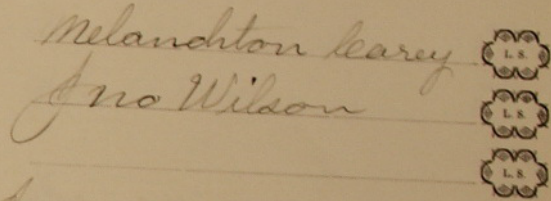 Melanchton Carey L. S.
Jno Wilson L. S.
L. S.